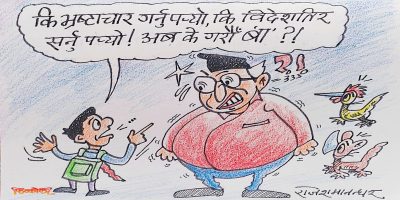 कि भ्रष्टाचार गर्नु पर्‍यो, कि विदेशतिर
सर्नु पर्‍यो ! अब के गरौँ 'बा' ?!
?!
राजेशमानन्धर